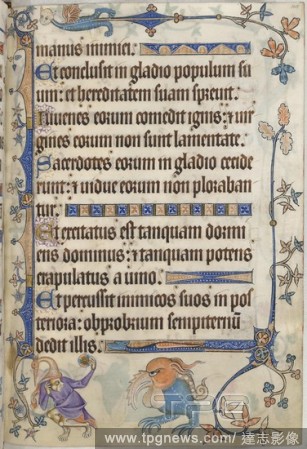 manus inimici.
Et conclusit in gladio populum su
um: et hereditatem suam spreuit.
Iuuenes eorum comedit ignis: et uir
gines eorum non sunt lamentate.
Sacerdotes eorum in gladio cecide
runt: et uidue eorum non ploraban
tur.
Et excitatus est tanquam dormi
ens dominus: tanquam potens
crapulatus a uino.
Et percussit inimicos suos in pos
teriora: obprobrium sempiternū
dedit illis.
www.tpgnews.com/ 達志影像